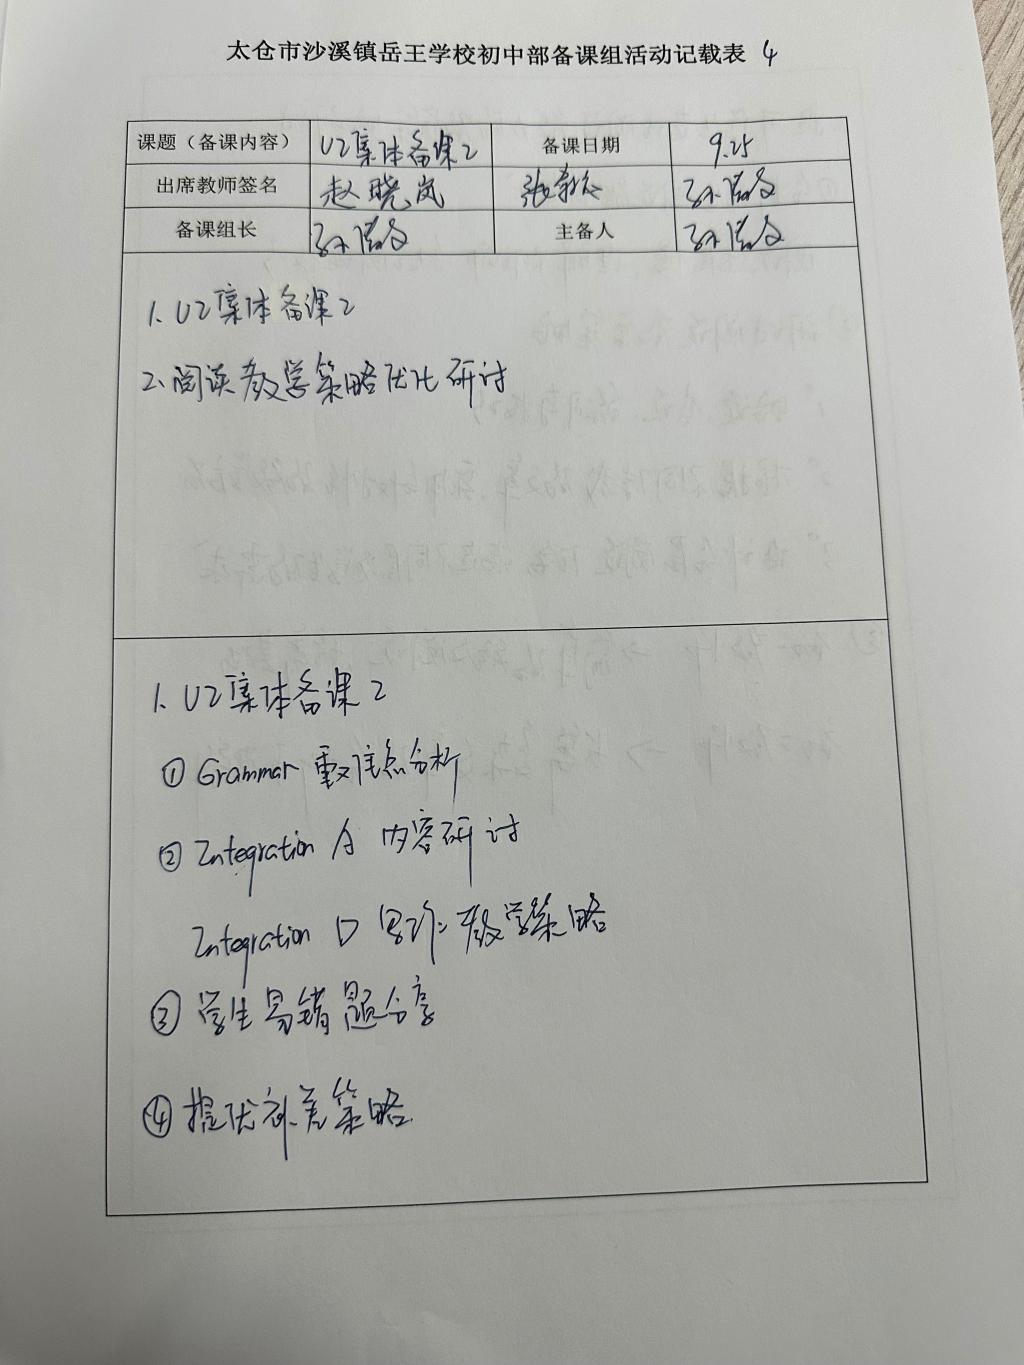 太仓市沙溪镇岳王学校初中部备课组活动记载表 4
课题（备课内容） U2集体备课2 备课日期 9.25
出席教师签名 赵晓岚
备课组长 主备人
1. U2集体备课2
2. 阅读教学策略优化研讨
1. U2集体备课2
① Grammar 重难点分析
② Integration A 内容研讨
Integration D 写作教学策略
③ 学生易错题分享
④ 提优补差策略